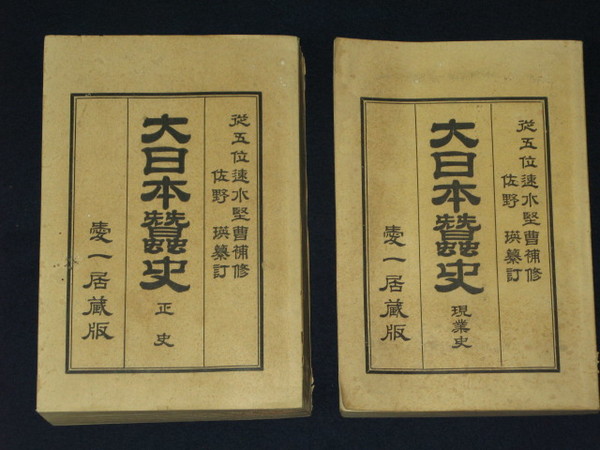 從五位速水堅曹補修
佐野瑛纂訂
大日本蠶史
正史
愛一居蔵版
從五位速水堅曹補修
佐野瑛纂訂
大日本蠶史
現業史
愛一居蔵版